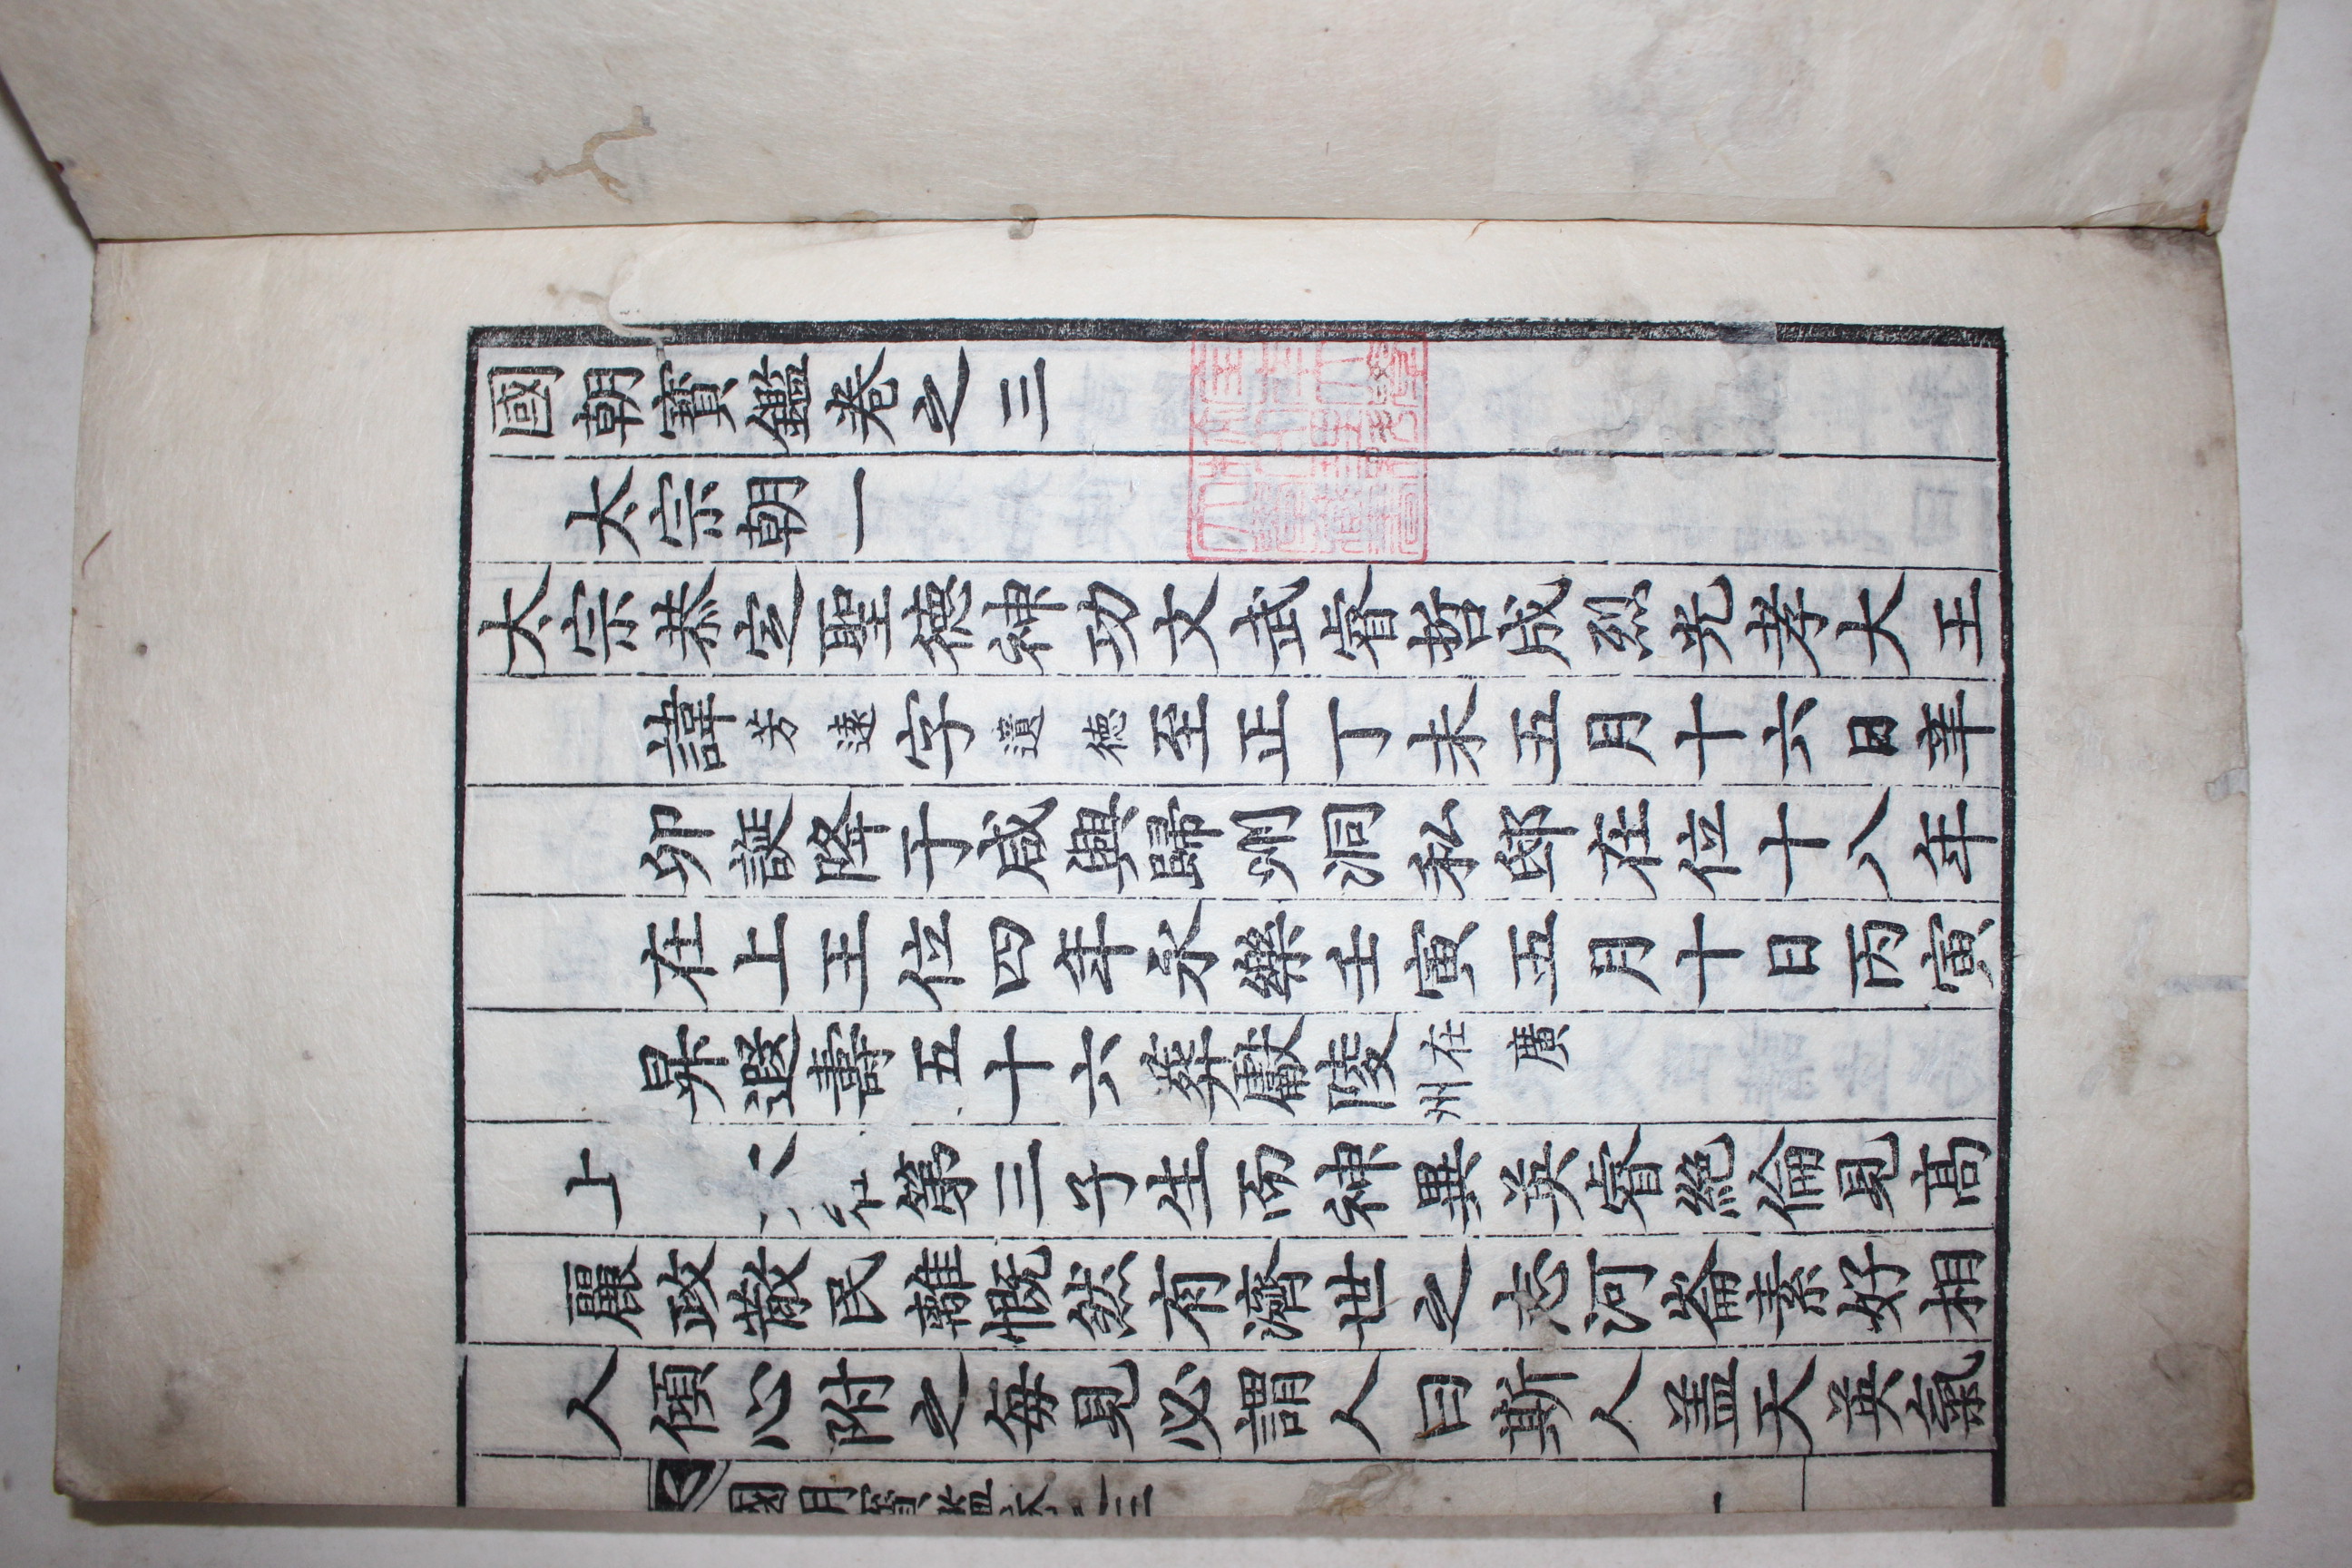 國朝寶鑑卷之三
太宗朝一
太宗恭定聖德神功文武睿哲成烈光孝大王
諱芳遠字遺德至正丁未五月十六日辛
卯誕降于咸興歸州洞私邸在位十八年
在上王位四年永樂壬寅五月十日丙寅
昇遐壽五十六葬獻陵在廣州
上 第三子生而神異英睿絶倫見高
麗政散民離慨然有濟世之志河崙素好相
人傾心附之每見必謂人曰斯人蓋天英氣
國朝寶鑑卷之三